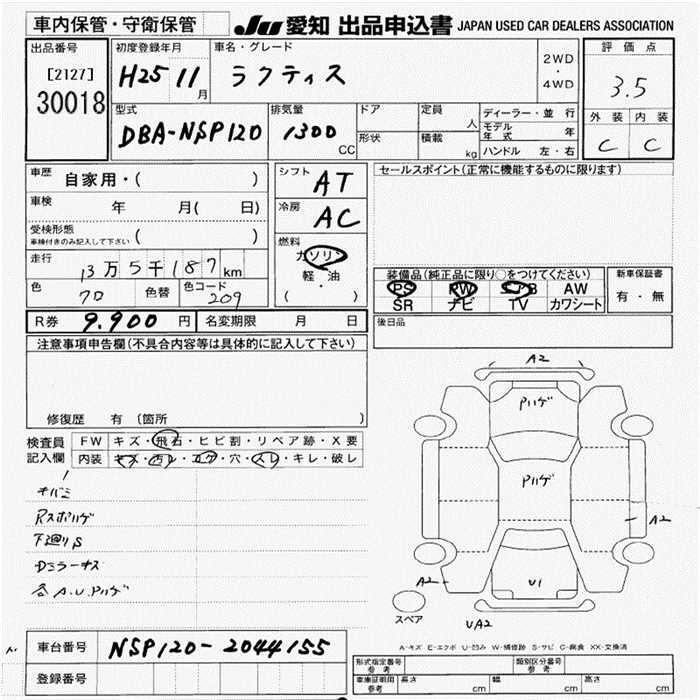 車内保管・守衛保管
JU 愛知 出品申込書 JAPAN USED CAR DEALERS ASSOCIATION
出品番号 初度登録年月 車名・グレード 評価点
[2127] H25 11月 ラクティス 2WD・4WD 3.5
30018 外装 内装
型式 排気量 ドア 定員 人 ディーラー・並行
DBA-NSP120 1300 CC 形状 積載 kg モデル年式 年 C C
ハンドル 左・右
車歴 自家用・( ) シフト AT セールスポイント(正常に機能するものに限ります)
車検 年 月( 日) 冷房 AC
受検形態
車検付きのみ記入して下さい ( ) 燃料 ガソリン
走行 13万5千187km 軽・油 装備品(純正品に限り○をつけてください) 新車保証書
色 70 色替 色コード 209 ( ) PS PW AW 有・無
SR ナビ TV カワシート
R券 9.900円 名変期限 月 日 後日品
注意事項申告欄(不具合内容等は具体的に記入して下さい)
A2
Pハゲ
修復歴 有 (箇所 )
検査員 FW キズ・飛石・ヒビ割・リペア跡・X要
記入欄 内装 キズ・汚レ・コゲ・穴・スレ・キレ・破レ
Pハゲ
キバミ
Rスポハゲ
A2
下廻りS
Dミラーキズ
A2 U1
各A.U.Pハゲ
スペア UA2
A-キズ E-エクボ U-凹み W-補修跡 S-サビ C-腐食 XX-交換済
車台番号 NSP120-2044155
登録番号
形式指定番号 参考 類別区分番号 参考
車庫証明用 参考 長さ cm 幅 cm 高さ cm